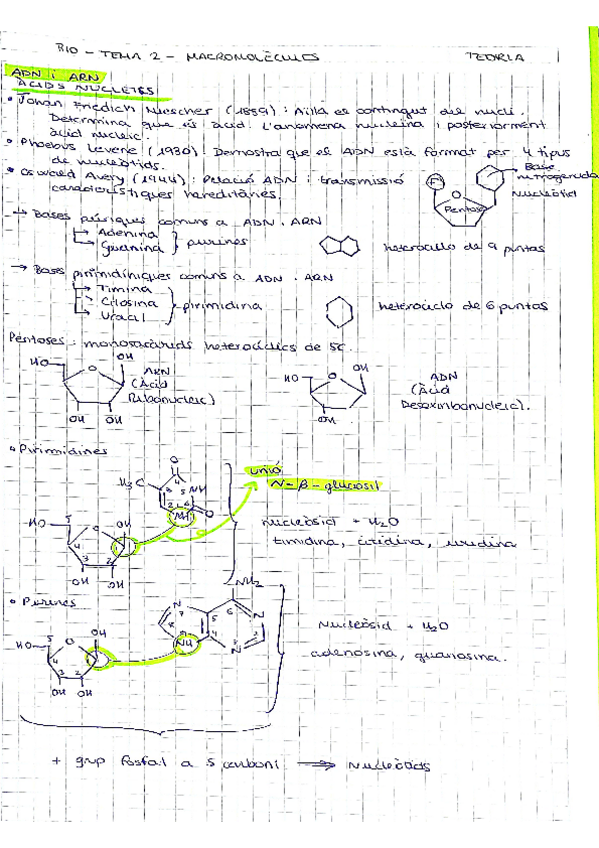 BIO - TEMA 2 - MACROMOLÈCULES TEORIA
ADN i ARN
ÀCIDS NUCLEICS
• Johan Friedich Miescher (1889): Aïlla es contingut del nucli.
Determina que és àcid. L'anomena nucleina i posteriorment
àcid nucleic.
• Phoebus Levene (1930). Demostra que es ADN està format per 4 tipus
de nucleòtids.
• Oswald Avery (1944): Relació ADN i transmissió
característiques hereditàries.
P
O
Pentose
Base
nitrogenada
Nucleòtid
→ Bases púriques comuns a ADN i ARN
→ Adenina
→ Guanina
purines
heterociclo de 9 puntas
→ Bases pirimidíniques comuns a ADN i ARN
→ Timina
→ Citosina
→ Uracil
pirimidina
heterociclo de 6 puntas
Pentoses: monosacàrids heterocíclics de 5C.
HO O OH
OH OH
ARN
(Àcid
Ribonucleic)
HO O OH
OH
ADN
(Àcid
Desoxiribonucleic).
• Pirimidines
O
H₃C 4
5 NH
2
NH O
HO 5 O OH
4 1
3 2
OH OH
unió
N-β-glucosil
nucleòsid + H₂O
timidina, citidina, uridina
• Purines
NH₂
N 7 5 6 N
8 4 N
NH
HO 5 O OH
4 1
3 2
OH OH
Nucleòsid + H₂O
adenosina, guanosina.
+ grup fosfat a 5 carboni ⟹ Nucleòtids